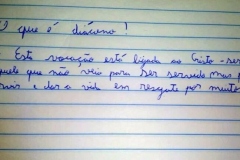 O que é diácono!
Esta vocação está ligada ao Cristo-ser
quele que não veio para ser servido mas p
rvir e dar a vida em resgate por muito